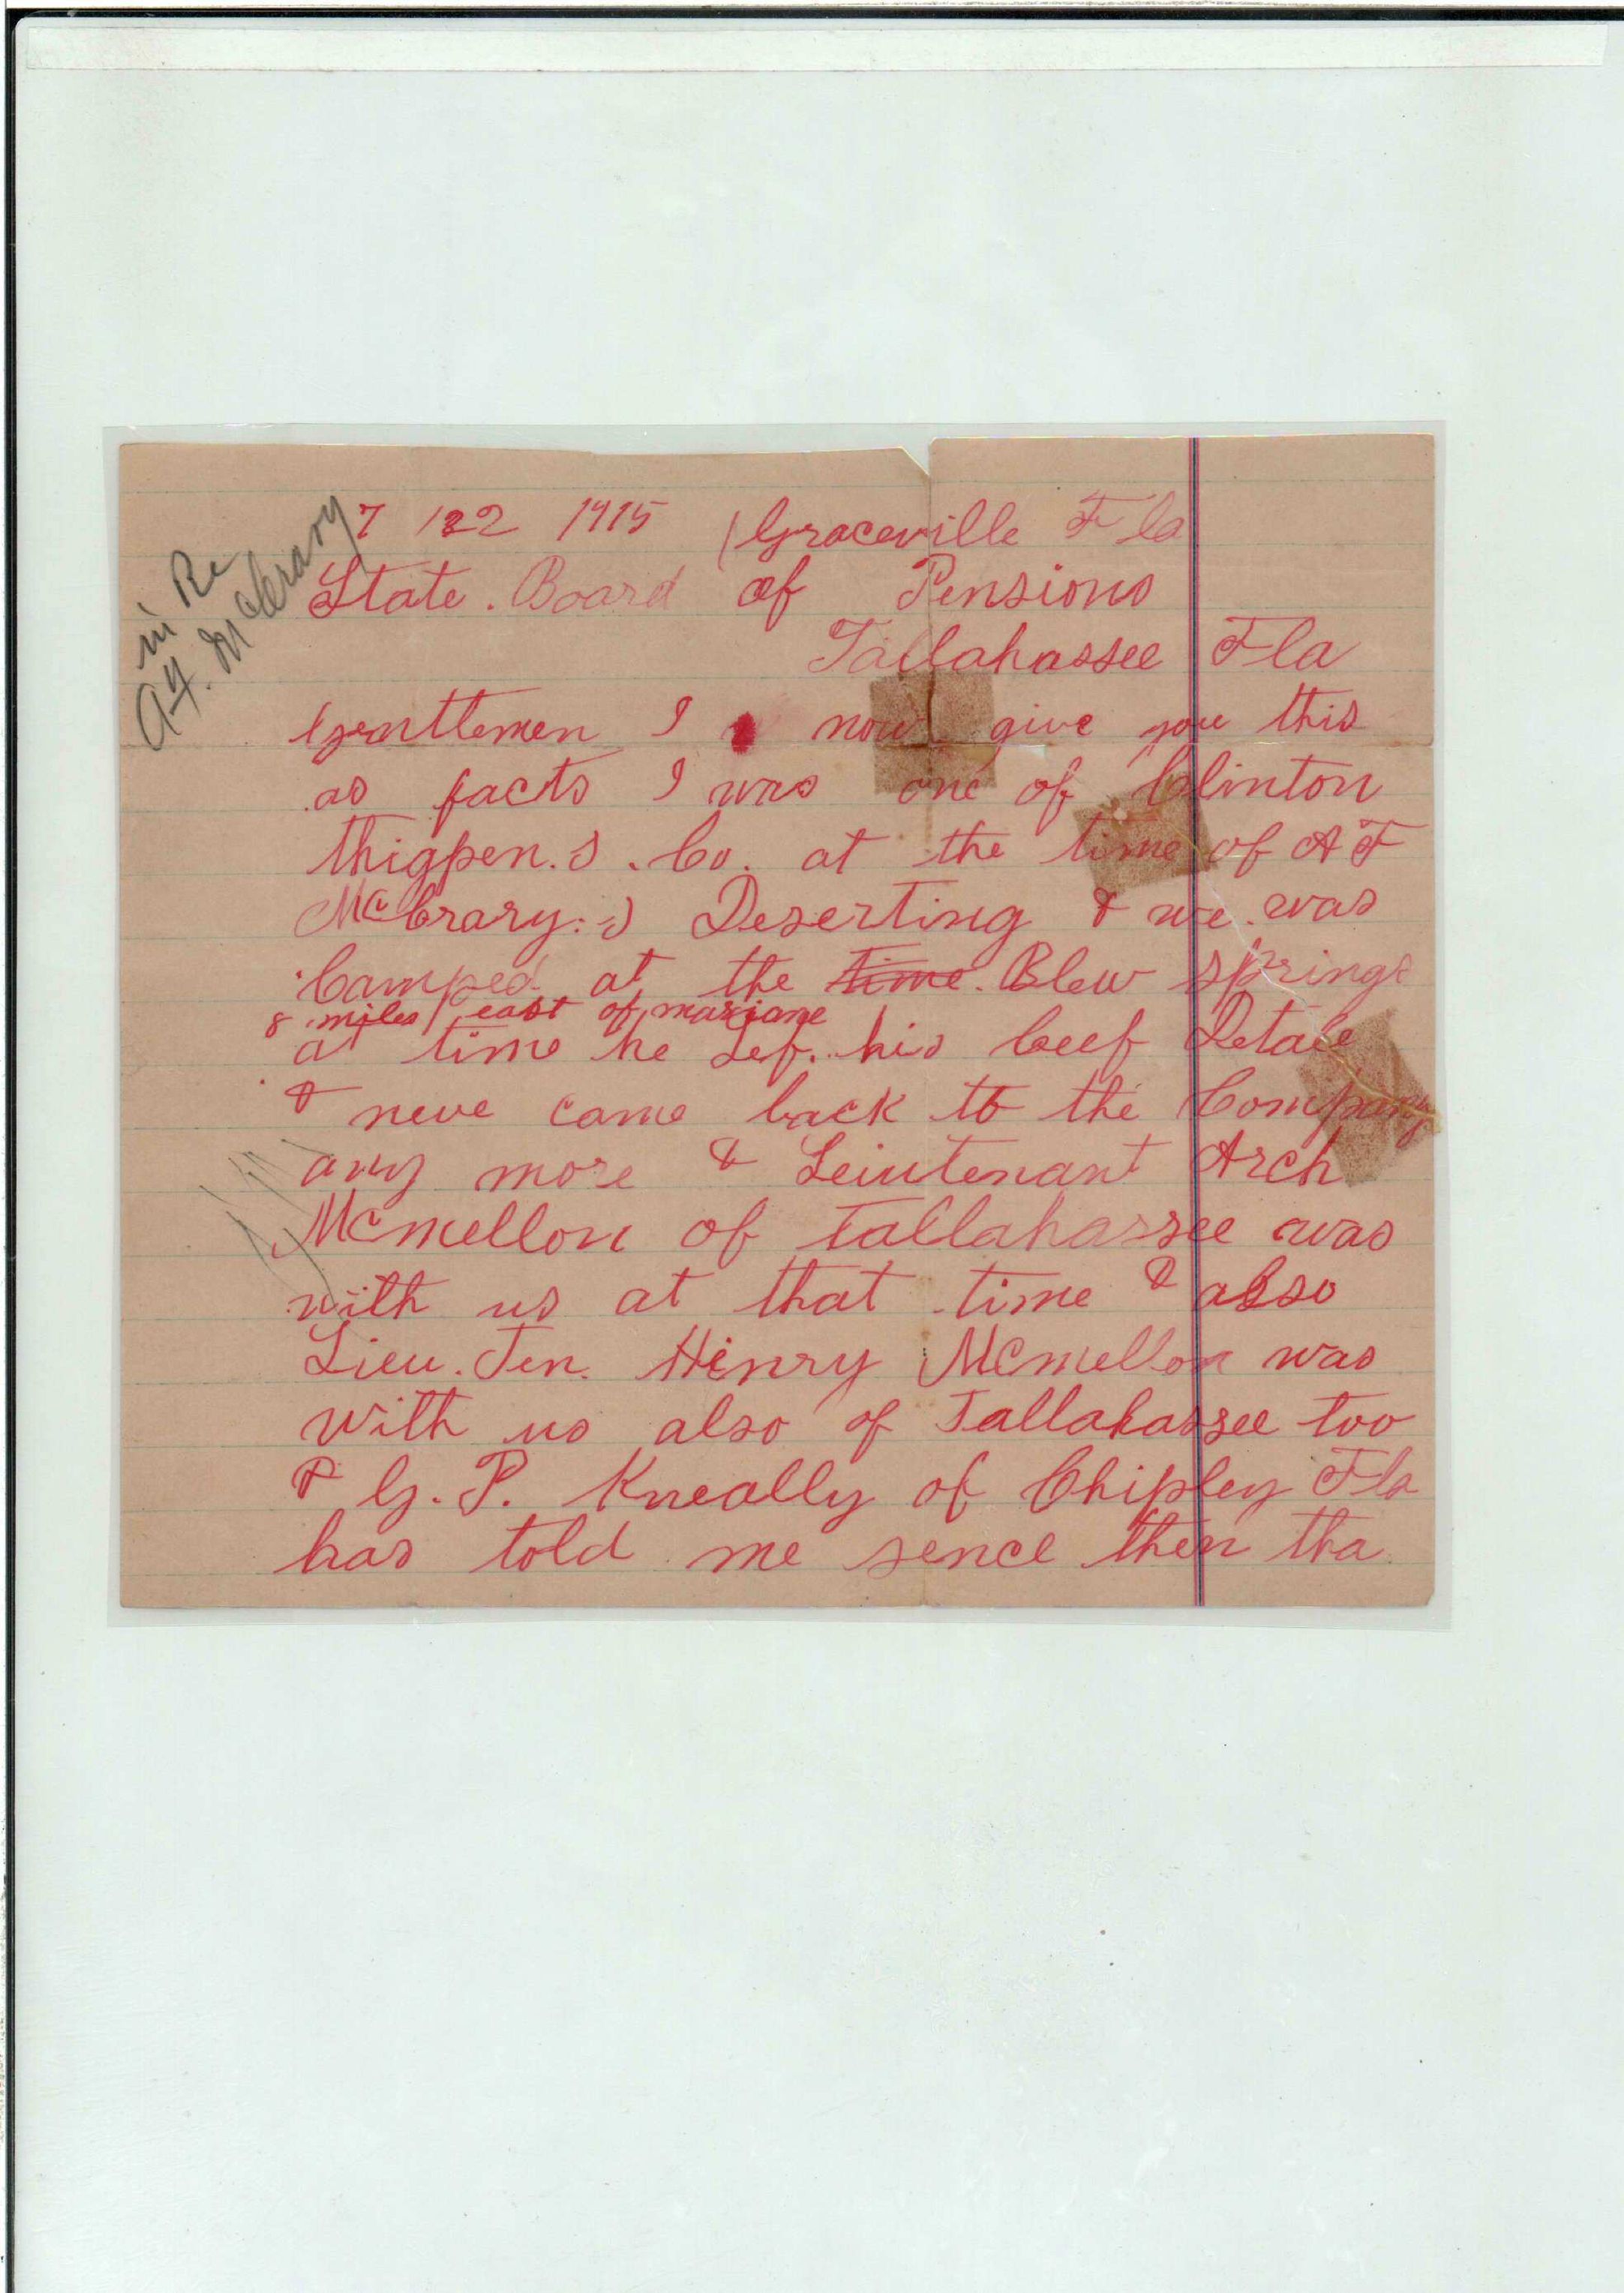 in Re
A.F. McCrary
7 / 22 1915 / Graceville Fla
State. Board of Pensions
Tallahassee Fla
Gentlemen I now give you this
as facts I was one of Clinton
thigpen.s. Co. at the time of A F
McCrary.s Deserting & we was
Camped at the time. Blew springs
8 miles east of mariane
at time he Lef. his beef Detale
& neve came back to the Company
any more & Leiutenant Arch
Mcmellon of Tallahassee was
with us at that time & also
Lieu. Ten. Hinry Mcmellon was
with us also of Tallahassee too
& G. P. Kneally of Chipley Fla
has told me sence then tha